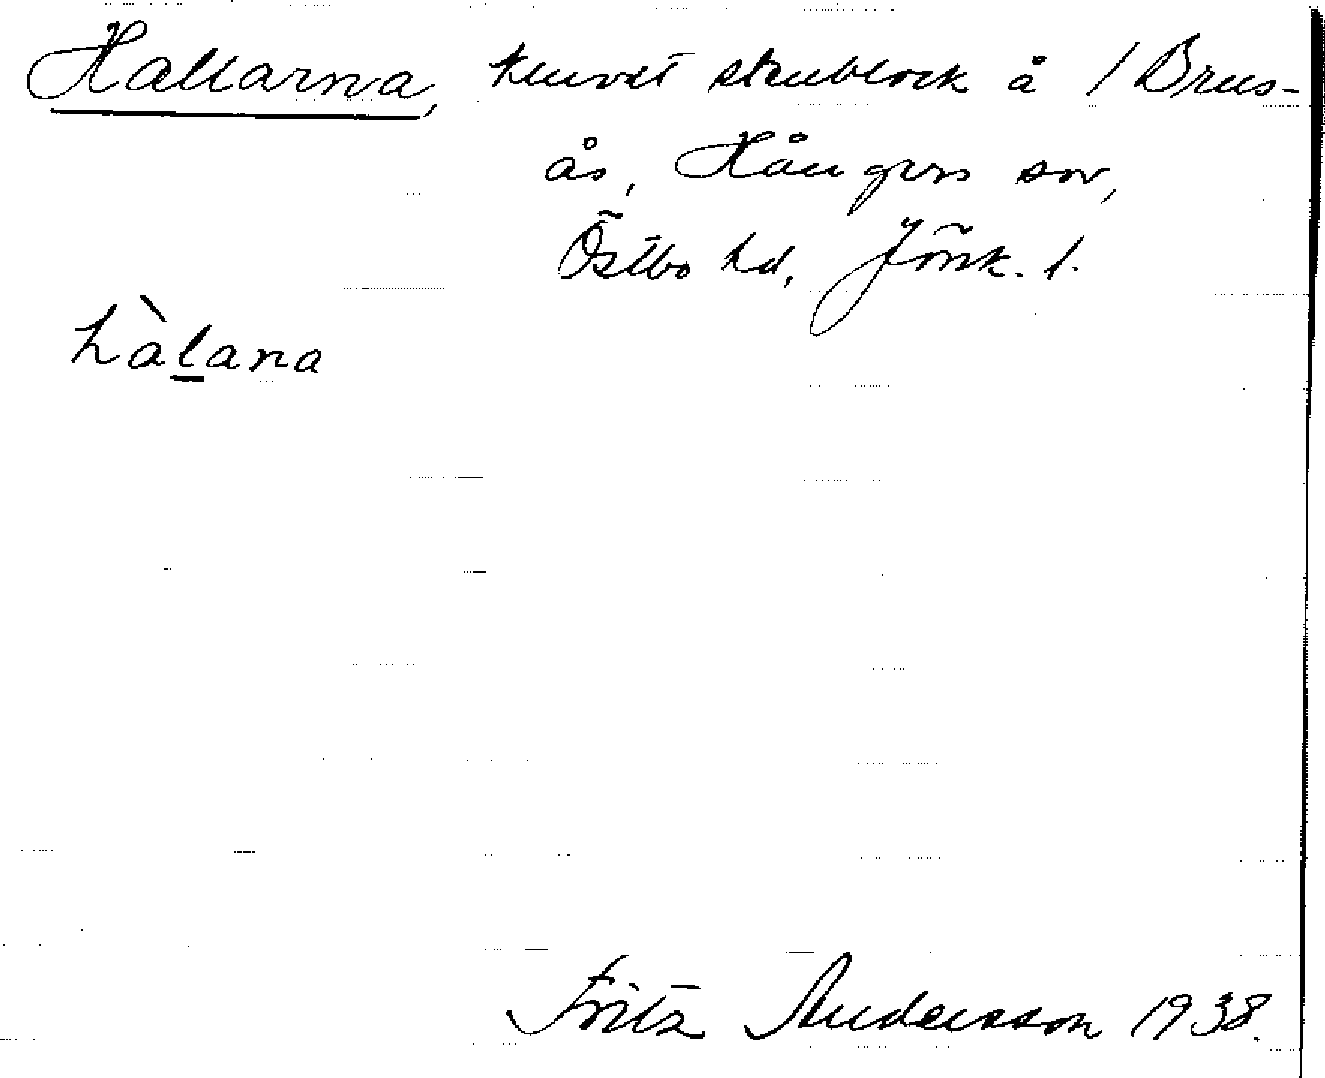 Hallarna, kluvet stenblock å / Brus-
ås, Hångers sn,
Östbo hd, Jönk. l.
hàlana
Fritz Andersson 1938.